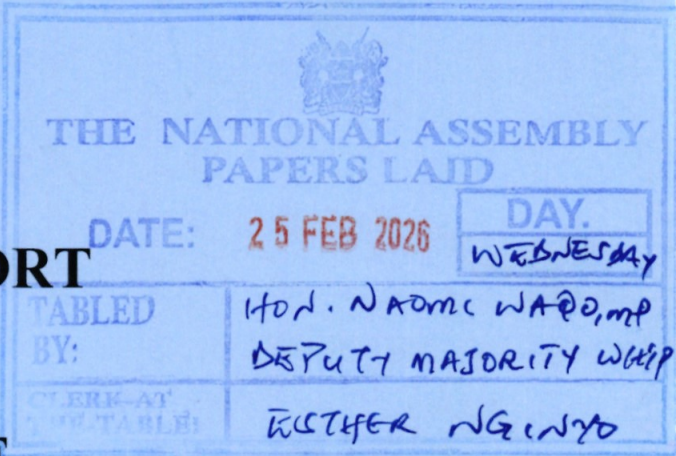 THE NATIONAL ASSEMBLY
PAPERS LAID
DATE: 25 FEB 2026
DAY.
WEDNESDAY
ORT
TABLED BY:
HON. NAOMI WAQO, MP
DEPUTY MAJORITY WHIP
CLERK-AT THE-TABLE:
ESTHER NGINYO